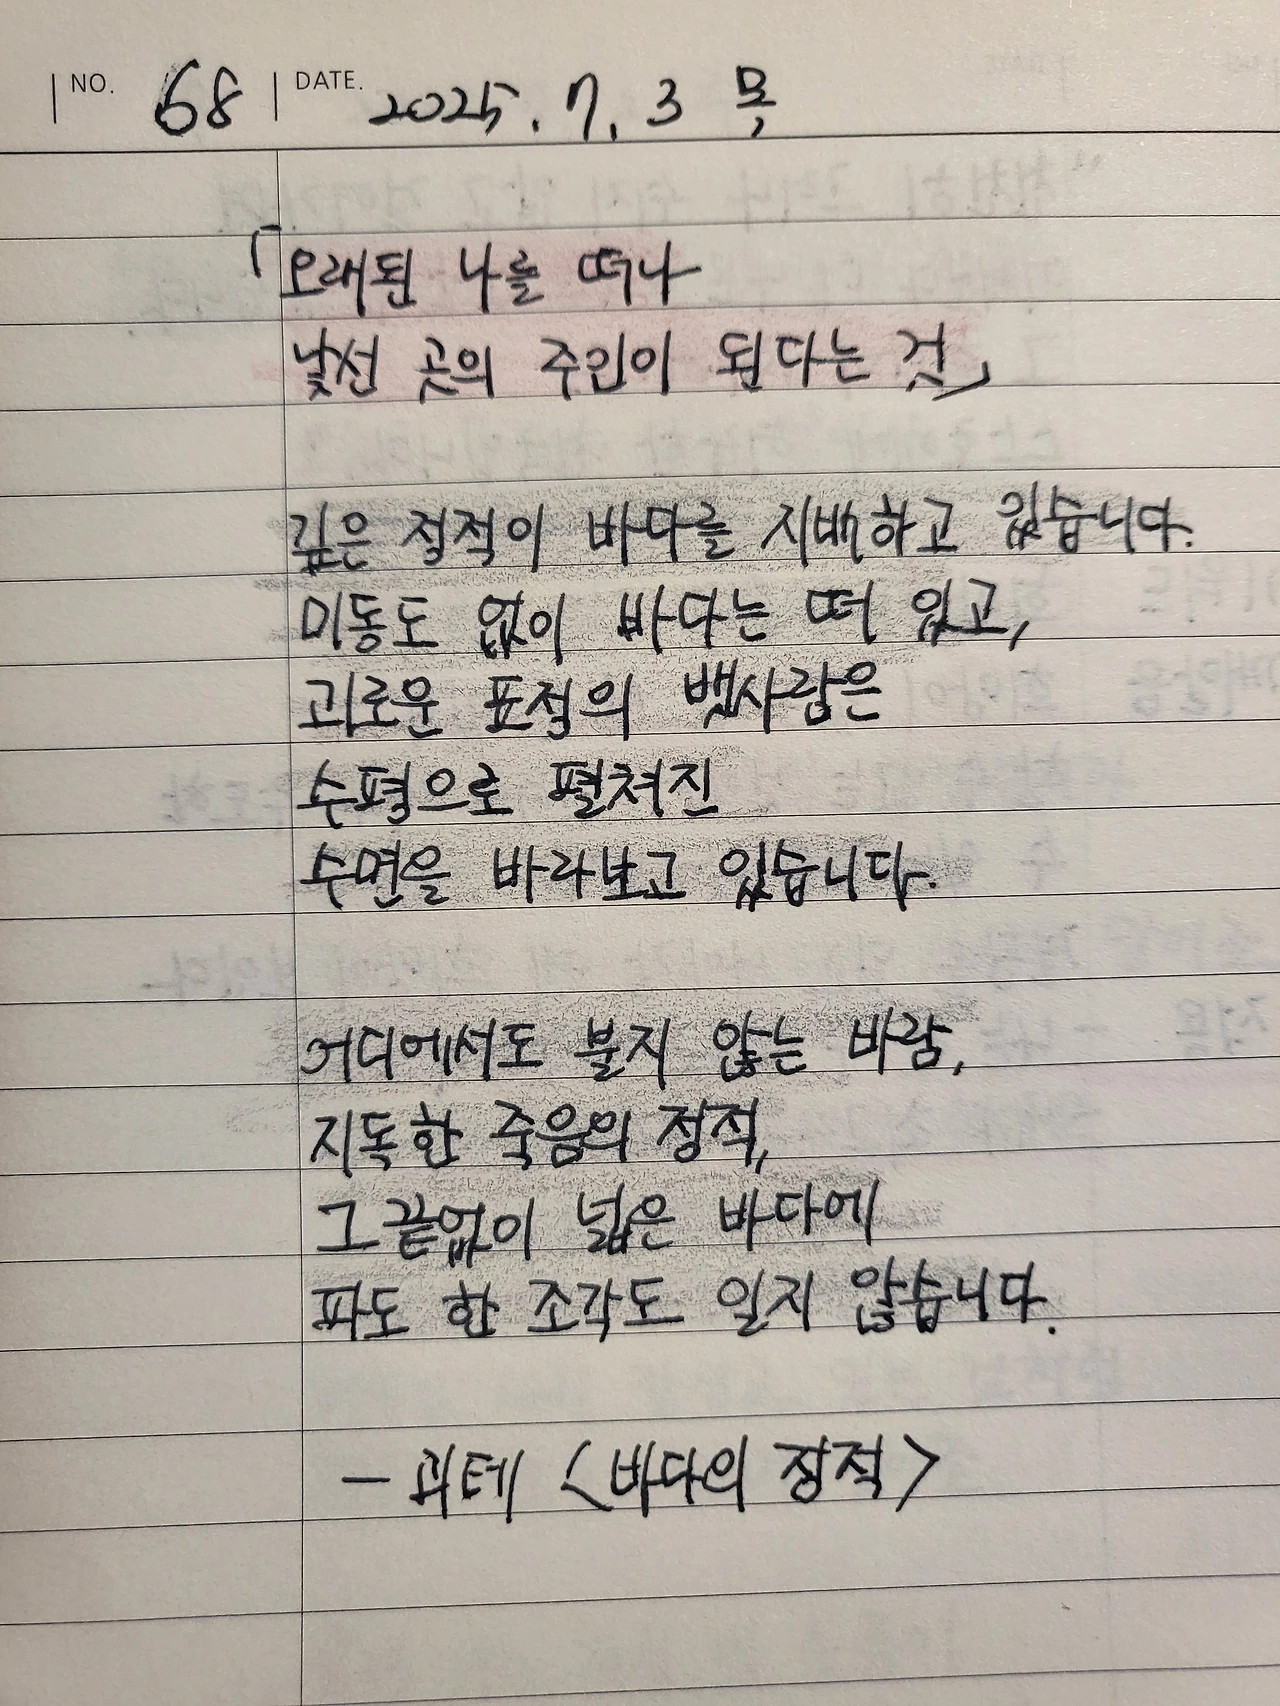 NO. 68 DATE. 2025. 7. 3 목
「오래된 나를 떠나
낯선 곳의 주인이 된다는 것」
깊은 정적이 바다를 지배하고 있습니다.
미동도 없이 바다는 떠 있고,
괴로운 표정의 뱃사람은
수평으로 펼쳐진
수면을 바라보고 있습니다.
어디에서도 불지 않는 바람,
지독한 죽음의 정적,
그 끝없이 넓은 바다에
파도 한 조각도 일지 않습니다.
- 괴테 <바다의 정적>